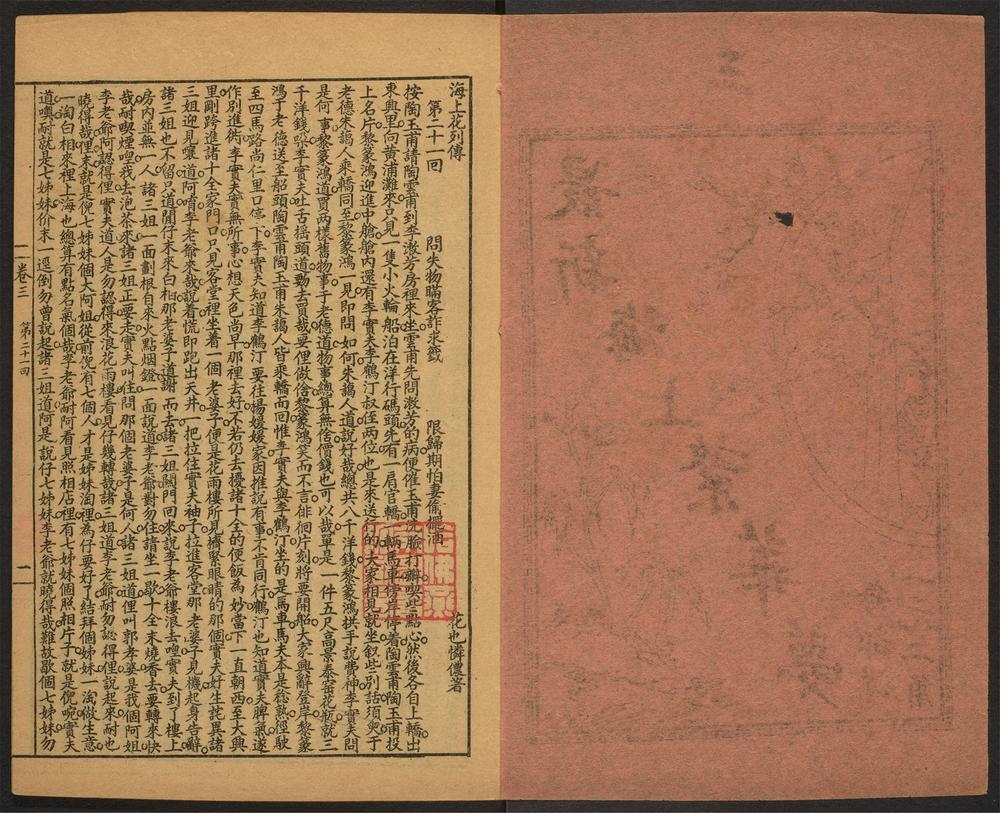 三
最新
海上繁華夢
海上花列傳
第二十一回　問失物瞞客詐求籤　限歸期怕妻偷擺酒　花也憐儂著
按陶玉甫請陶雲甫到李漱芳房裡來坐雲甫先問漱芳的病便催玉甫洗臉打辮喫些點心然後各自上轎出
東興里向黃浦灘來只見一隻小火輪船泊在洋行碼頭先有一肩官轎一輛馬車岸停着陶雲甫陶玉甫投
上名片黎篆鴻迎進中艙艙內還有李實夫李鶴汀叔侄兩位也是來送行的大家相見就坐叙些別話須臾于
老德朱藹人乘轎同至黎篆鴻一見即問如何朱藹人道說好哉總共八千洋錢黎篆鴻拱手說費神李實夫問
是何事黎篆鴻道買兩樣舊物事于老德道物事總算無啥價錢也可以哉單是一件五尺高景泰窑花瓶就三
千洋錢㗒李實夫吐舌搖頭道勁去買哉要俚做啥黎篆鴻笑而不言徘徊片刻將要開船大家興辭登岸黎篆
鴻于老德送至船頭陶雲甫陶玉甫朱藹人皆乘轎而回惟李實夫與李鶴汀坐的是馬車馬夫本是稔熟徑駛
至四馬路尚仁里口停下李實夫知道李鶴汀要往楊媛媛家因推說有事不肯同行鶴汀也知道實夫脾氣遂
作別進衖李實夫實無所事心想天色尚早那裡去好不若仍去擾諸十全的便飯為妙當下一直朝西至大興
里剛跨進諸十全家門口只見客堂裡坐着一個老婆子便是花雨樓所見擠緊眼睛的那個實夫好生詫異諸
三姐迎見嚷道阿唷李老爺來哉說着慌即跑出天井一把拉住實夫袖子拉進客堂那老婆子見機起身告辭
諸三姐也不留只道閒仔末來白相那老婆子道謝而去諸三姐關門回來說李老爺樓浪去㖸實夫到了樓上
房內並無一人諸三姐一面劃根自來火點烟燈一面說道李老爺對勿住請坐一歇十全末燒香去要轉來快
哉耐喫烟㖸我去泡茶來諸三姐正要走實夫叫住問那個老婆子是何人諸三姐道俚叫郭孝婆是我個阿姐
李老爺阿認得俚實夫道人是勿認得來浪花雨樓看見仔幾轉哉諸三姐道李老爺耐勿認得俚說起來耐也
曉得哉俚末就是倪七姊妹個大阿姐從前倪有七個人才是姊妹淘裡為仔要好了結拜個姊妹一淘做生意
一淘白相來裡上海也總算有點名氣個哉李老爺耐阿看見照相店裡有七姊妹個照相片子就是倪㖸實夫
道噢耐就是七姊妹价末一逕倒勿曾說起諸三姐道阿是說仔七姊妹李老爺就曉得哉難故歇個七姊妹勿
卷三　第二十一回　一